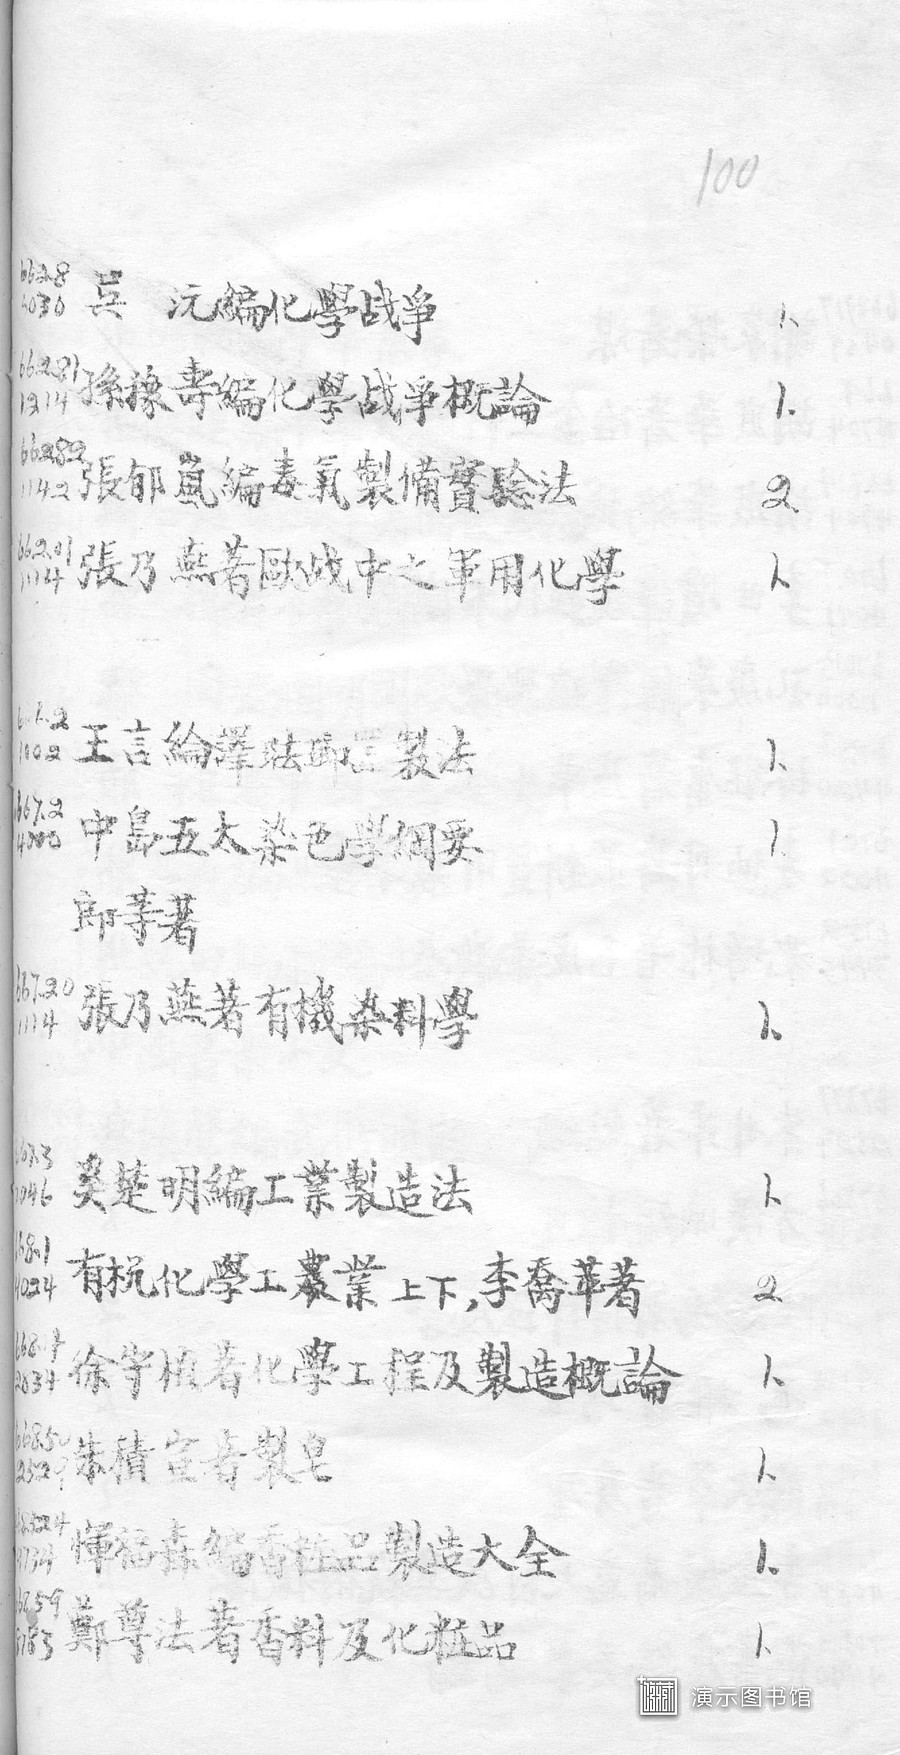 100
662.8
4030 吳 沅編化學战爭 1.
662.81
1214 孫豫壽編化學战爭概論 1.
662.82
1142 張郁嵐編毒氣製備實驗法 2
662.01
1114 張乃燕著歐战中之軍用化學 1.
王言綸譯琺瑯 製法 1.
667.2
4000 中島五大染色學綱要 1.
郎等著
667.20
1114 張乃燕著有機染料學 1.
667.3
吳楚明編工業製造法 1.
668.1
4024 有杋化學工農業上下,李喬苹著 2
668.1
2834 徐守楨著化學工程及製造概論 1.
668.50
2529 朱積宣著製皂 1.
惲福森編香粧品製造大全 1.
鄭尊法著香料及化粧品 1.
演示图书馆